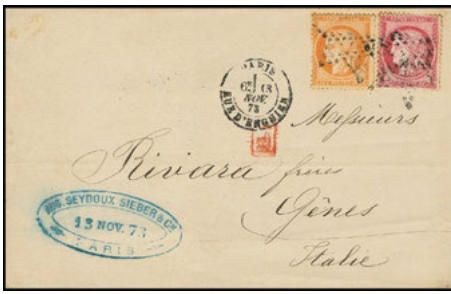 PARIS
6E 13
NOV.
73
RUE D'ENGHIEN
Messieurs
Rivara frères
Gênes
Italie
AUG. SEYDOUX SIEBER & CIE
13 NOV. 73
PARIS